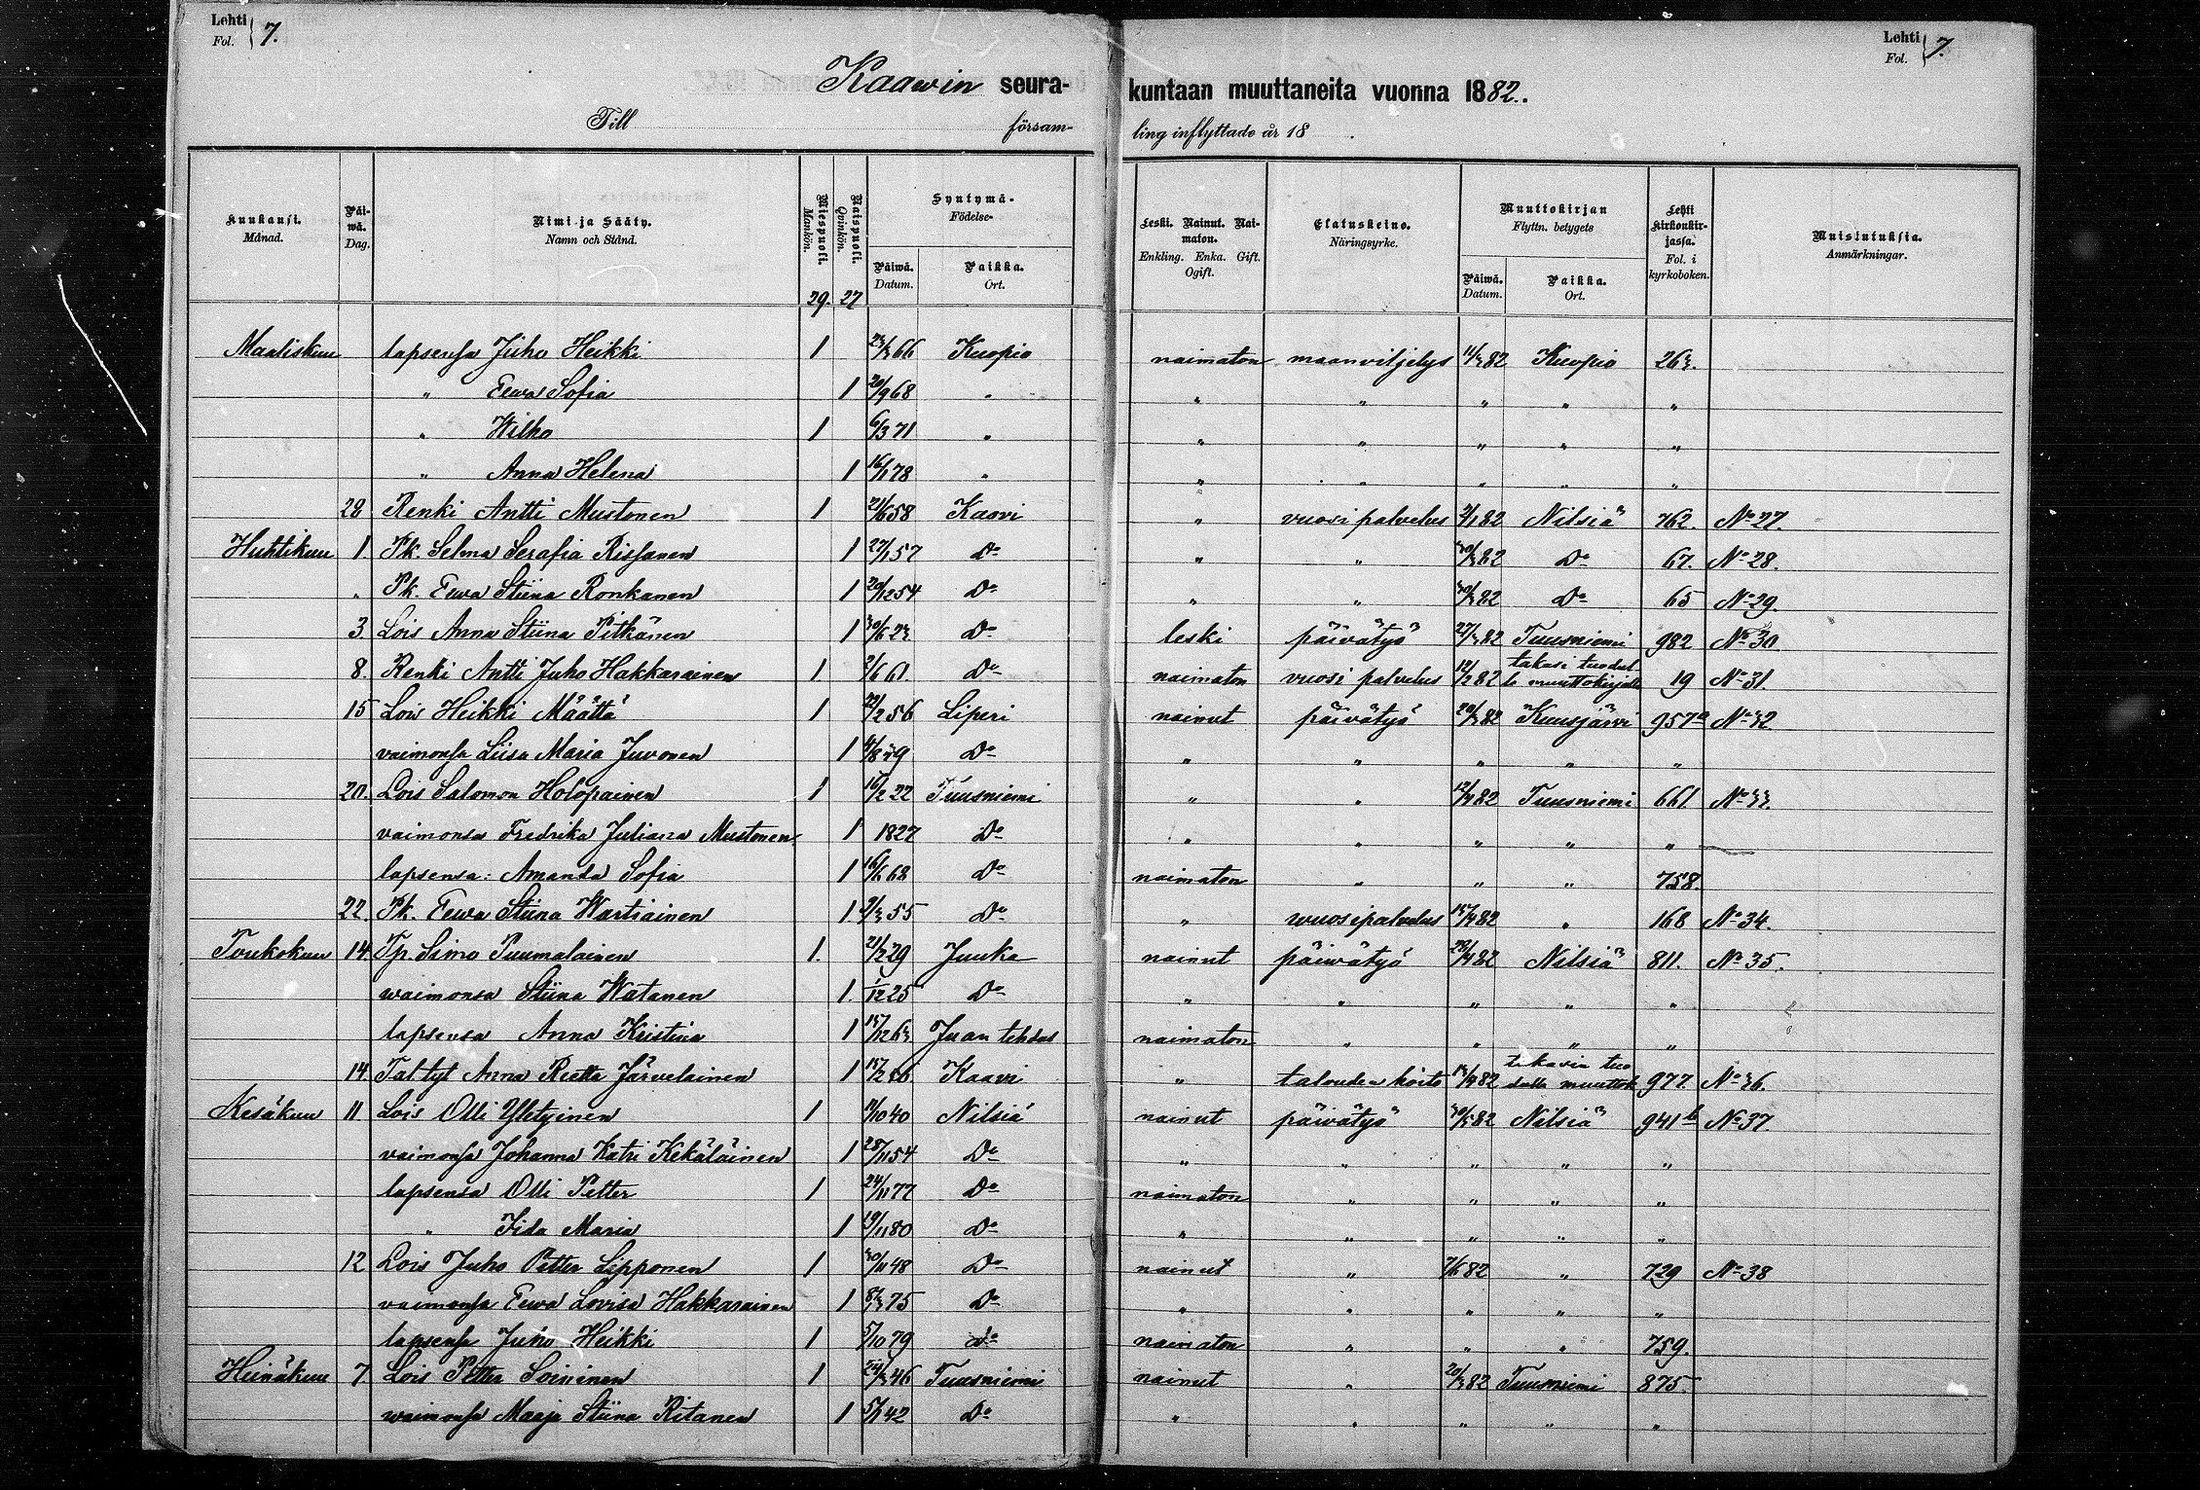 Lehti Fol. 7.
Lehti Fol. 7.
Kaawin seura-kuntaan muuttaneita vuonna 1882.
Till försam-ling inflyttade år 18 .
Kuukausi. Månad. Päi-wä. Dag. Nimi ja Sääty. Namn och Stånd. Miespuoli. Mankön. Naispuoli. Qvinkön. Syntymä- Födelse- Päiwä. Datum. Paikka. Ort. Leski. Nainut. Nai-maton. Enkling. Enka. Gift. Ogift. Elatuskeino. Näringsyrke. Muuttokirjan Flyttn. betygets Päiwä. Datum. Paikka. Ort. Lehti kirkonkir-jassa. Fol. i kyrkoboken. Muistutuksia. Anmärkningar.
29. 27
Maaliskuu lapsensa Juho Heikki 1 66 Kuopio naimaton maanviljelys 82 Kuopio 263.
" Eewa Sofia 1 20/9 68 " " " " " "
" Wilho 1 6/3 71 " " " " " "
" Anna Helena 1 16/1 78 " " " " " "
28 Renki Antti Mustonen 1 21/6 58 Kaavi " vuosi palvelus 82 Nilsiä 762. No 27.
Huhtikuu 1 Pk. Selma Serafia Rissanen 1 27/1 57 Do " " 30/3 82 Do 67. No 28.
" Pk. Eewa Stiina Ronkanen 1 20/12 54 Do " " 30/3 82 Do 65 No 29.
3 Lois Anna Stiina Pitkänen 1 30/6 23 Do leski päivätyö 27/3 82 Tuusniemi 982 No 30
8. Renki Antti Juho Hakkarainen 1 2/6 61 Do naimaton vuosi palvelus 12/2 82 takasi tuodul-la muuttokirjalla 19 No 31.
15 Lois Heikki Määttä 1 56 Liperi nainut päivätyö 82 Kuusjärvi 957a No 32.
vaimonsa Liisa Maria Juvonen 1 Do " " " " "
20. Lois Salomon Holopainen 1 16/2 22 Tuusniemi " " 82 Tuusniemi 661 No 33.
vaimonsa Fredrika Juliana Mustonen 1 1827 Do " " " " "
lapsensa: Amanda Sofia 1 16/6 68 Do naimaton " " " 758.
22. Pk. Eewa Stiina Wartiainen 1 55 Do " wuosipalvelus 82 " 168 No 34.
Toukokuu 14. Tp. Simo Puumalainen 1. 29 Juuka nainut päiwätyö 82 Nilsiä 811. No 35.
waimonsa Stiina Watanen 1. 1/12 25 Do " " " " "
lapsensa Anna Kristina 1 15/12 63 Juan tehdas naimaton " " " "
14. Tal. tyt Anna Reetta Järvelainen 1 Kaavi " talouden hoito 82 takasin tuo dulla muuttok. 977. No 36.
Kesäkuu 11 Lois Olli Yletyinen 1 40 Nilsiä nainut päivätyö 30/5 82 Nilsiä 941b No 37.
vaimonsa Johanna Katri Kekäläinen 1 28/11 54 Do " " " " "
lapsensa Olli Petter 1 24/11 77 Do naimaton " " " "
" Iida Maria 1 19/11 80 Do " " " " "
12 Lois Juho Petter Lipponen 1 30/11 48 Do nainut " 7/6 82 " 729 No 38
vaimonsa Eewa Lovisa Hakkarainen 1 Do " " " " "
lapsensa Juho Heikki 1 5/10 79 do naimaton " " " 759.
Heinäkuu 7 Lois Petter Soininen 1 46 Tuusniemi nainut " 82 Tuusniemi 875.
waimonsa Maaja Stiina Ritanen 1 5/1 42 Do " " " " "